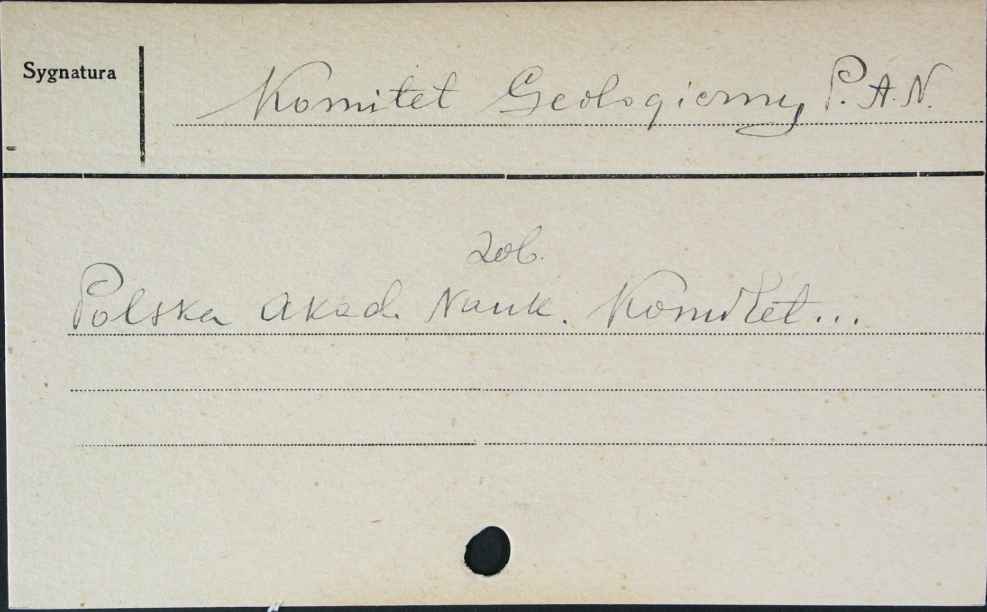 Sygnatura
Komitet Geologiczny P.A.N.
Zob.
Polska Akad. Nauk. Komitet...